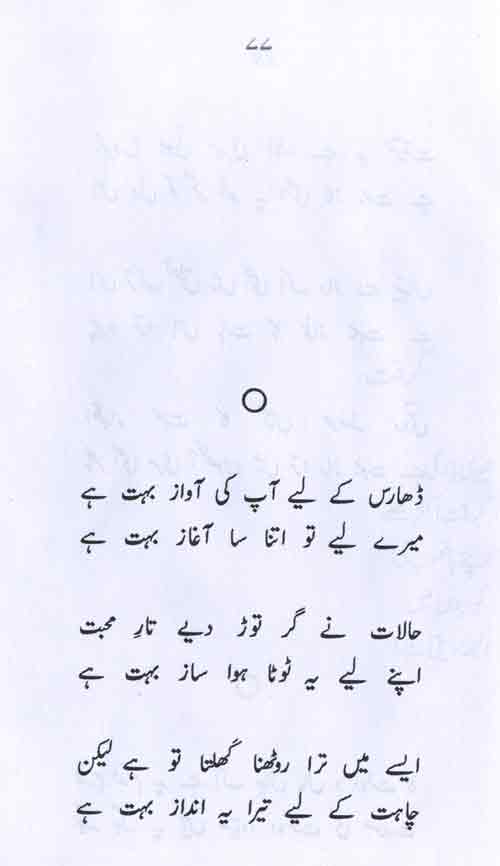 ۷۷
ڈھارس کے لیے آپ کی آواز بہت ہے
میرے لیے تو اتنا سا آغاز بہت ہے
حالات نے گر توڑ دیے تارِ محبت
اپنے لیے یہ ٹوٹا ہوا ساز بہت ہے
ایسے میں ترا روٹھنا گھلتا تو ہے لیکن
چاہت کے لیے تیرا یہ انداز بہت ہے